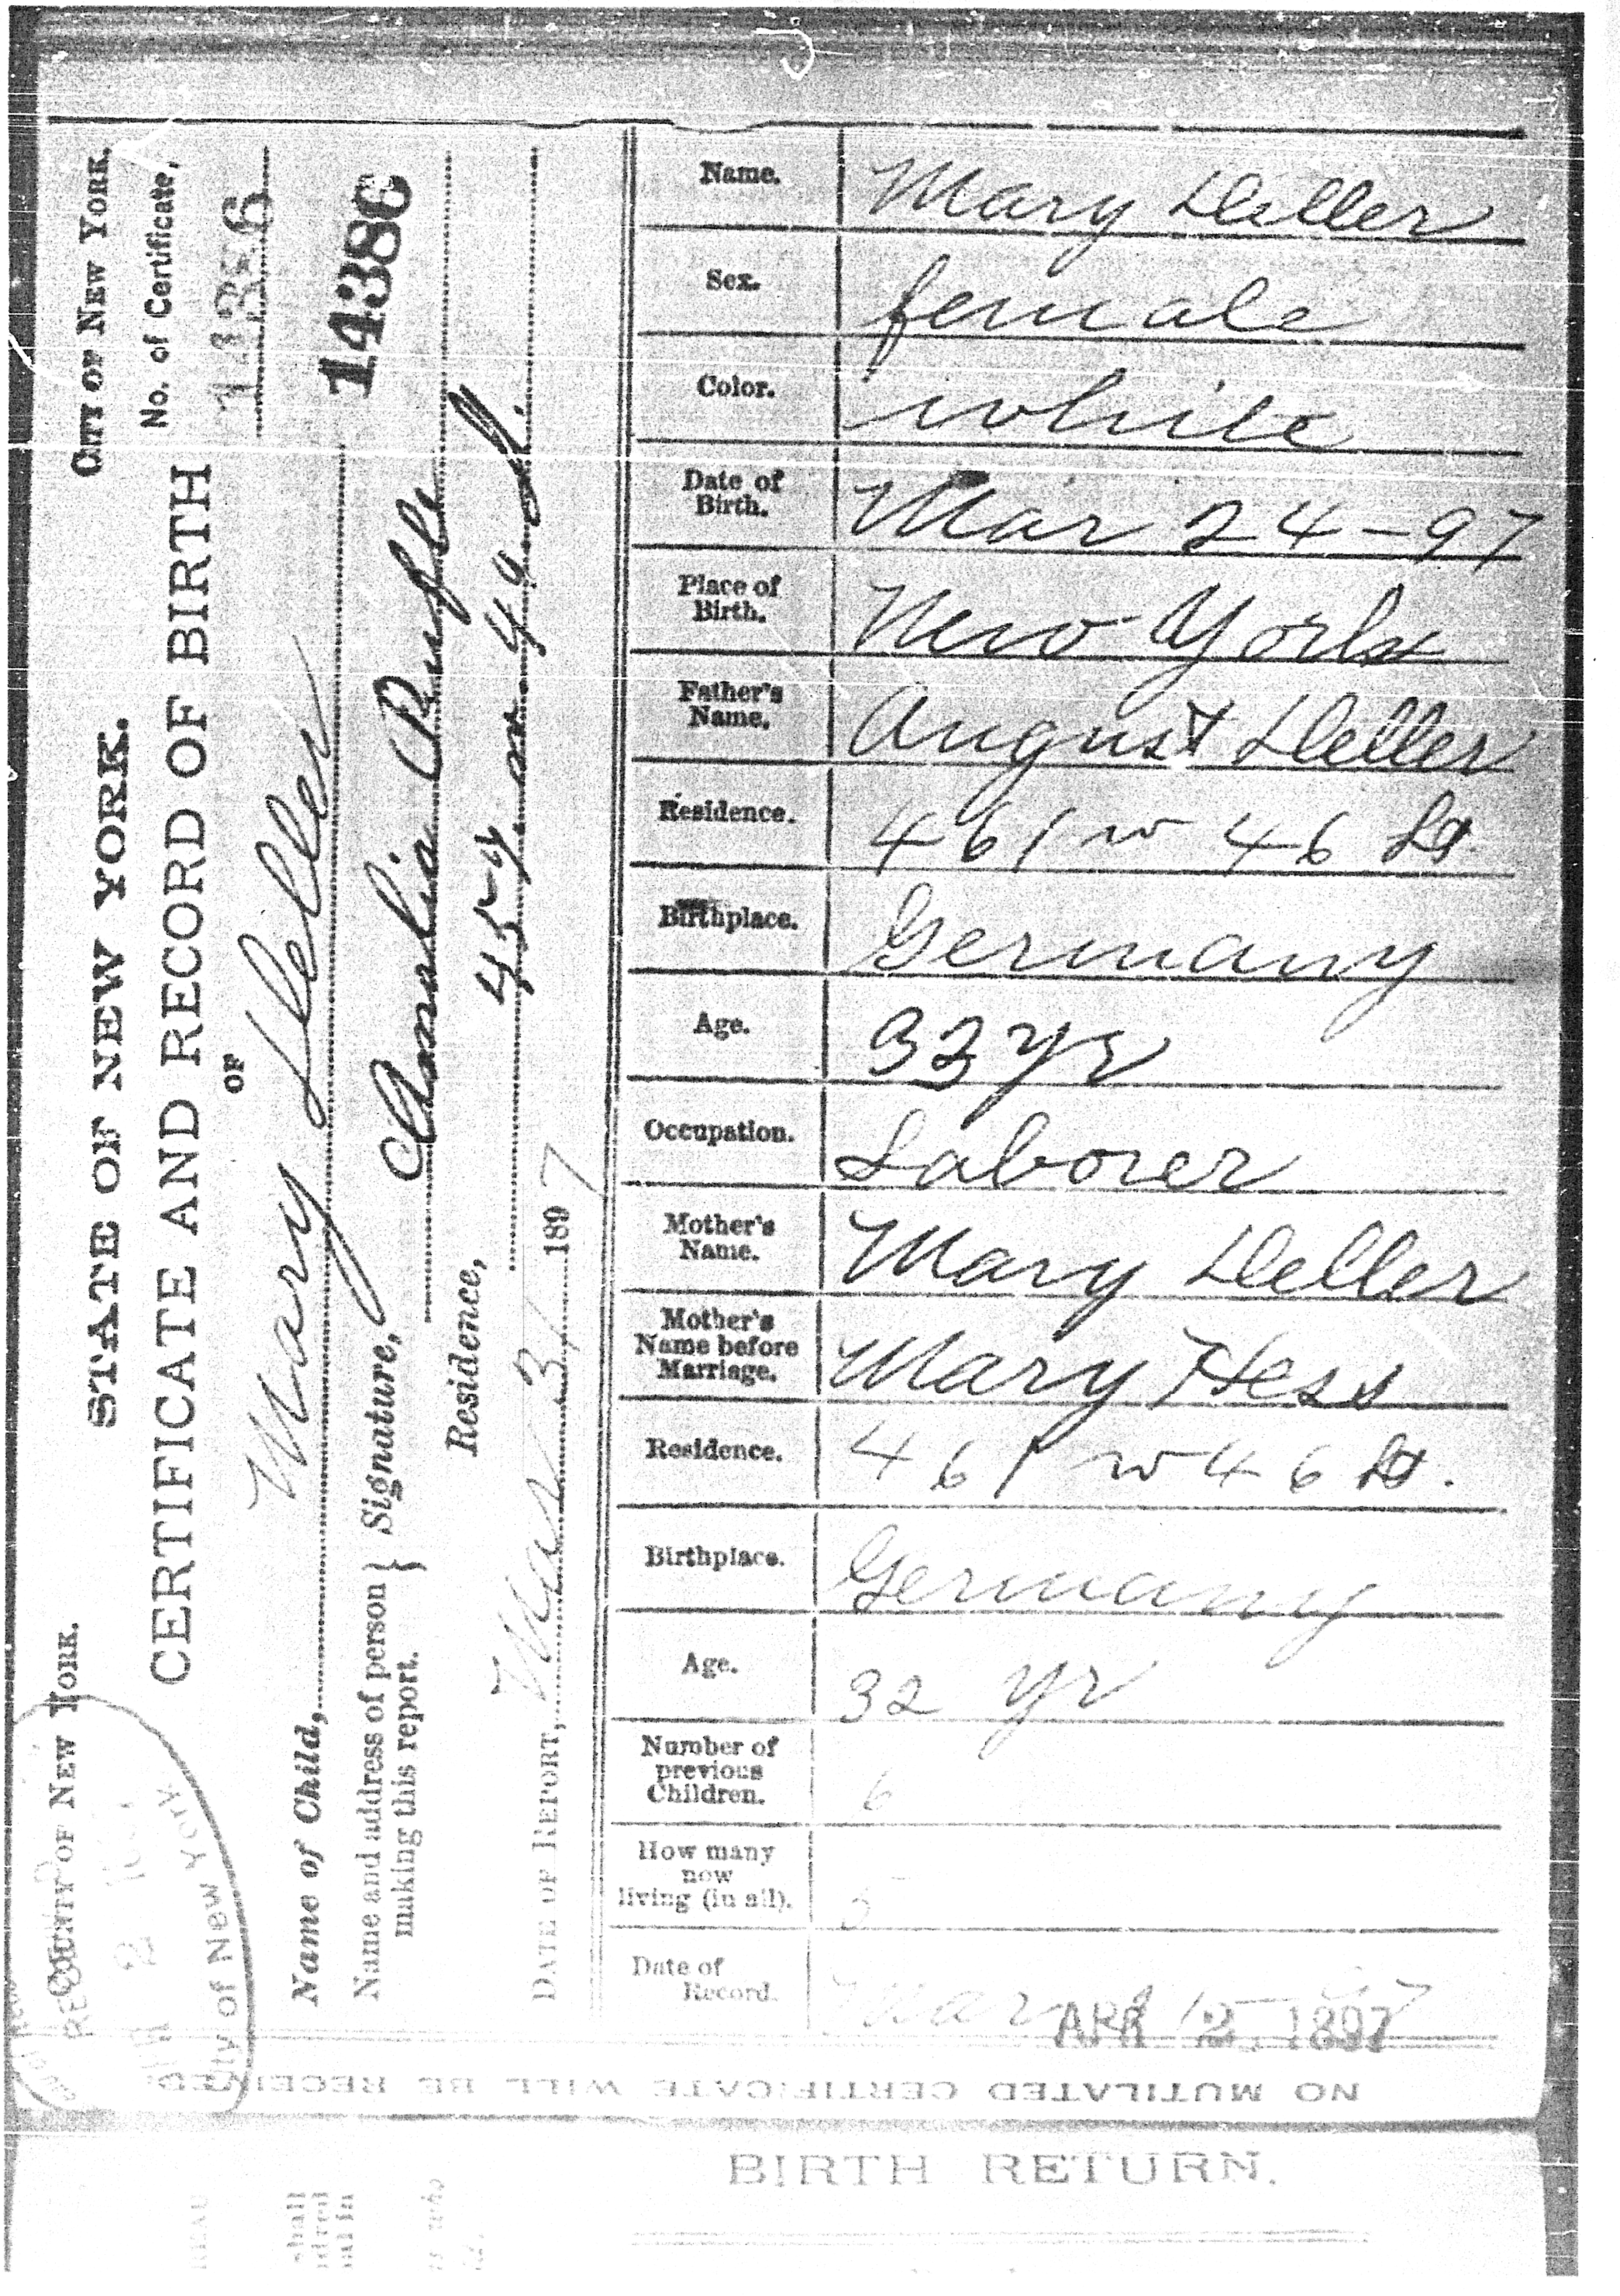 COUNTY OF NEW YORK.
CITY OF NEW YORK.
STATE OF NEW YORK.
No. of Certificate,
CERTIFICATE AND RECORD OF BIRTH
14386
OF
Name of Child, Mary Deller
14386
Name and address of person making this report. } Signature, Amelia
Residence, 457 W 49 St.
DATE OF REPORT, Mar 31 1897
Name. Mary Deller
Sex. female
Color. white
Date of Birth. Mar 24-97
Place of Birth. New York
Father's Name. August Deller
Residence. 461 w 46 St.
Birthplace. Germany
Age. 33 yr
Occupation. Laborer
Mother's Name. Mary Deller
Mother's Name before Marriage. Mary Hess
Residence. 461 w 46 St.
Birthplace. Germany
Age. 32 yr
Number of previous Children. 6
How many now living (in all). 5
Date of Record. Mar
APR 2 1897
NO MUTILATED CERTIFICATE WILL BE RECEIVED
City of New York
BIRTH RETURN.